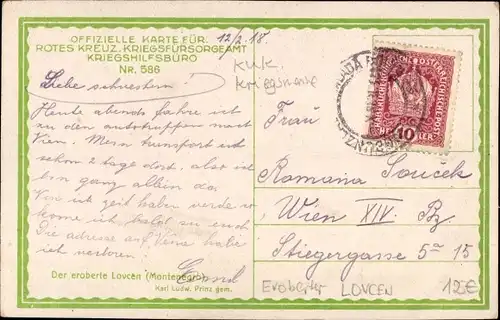 OFFIZIELLE KARTE FÜR:
ROTES KREUZ, KRIEGSFÜRSORGEAMT
KRIEGSHILFSBÜRO
NR. 586
12/2.18.
KuK.
Kriegsmarine
Liebe schwestern!
Heute abends fahre ich
zu den
Wien. Mein transport ist
schon 2 tage dort, also ist
bin ganz allein da.
Wen ich zeit haben werde so
kome ich bald zu euch
Die adresse auf habe
ich verloren.
KAIS. KÖN. ÖSTERREICHISCHE POST
10
HELLER
Frau
Romana Souček
Wien XIV. Bz
Stiegergasse 5 a 15
Der eroberte Lovćen (Montenegro)
Karl Ludw. Prinz gem.
Eroberter LOVCEN
12€